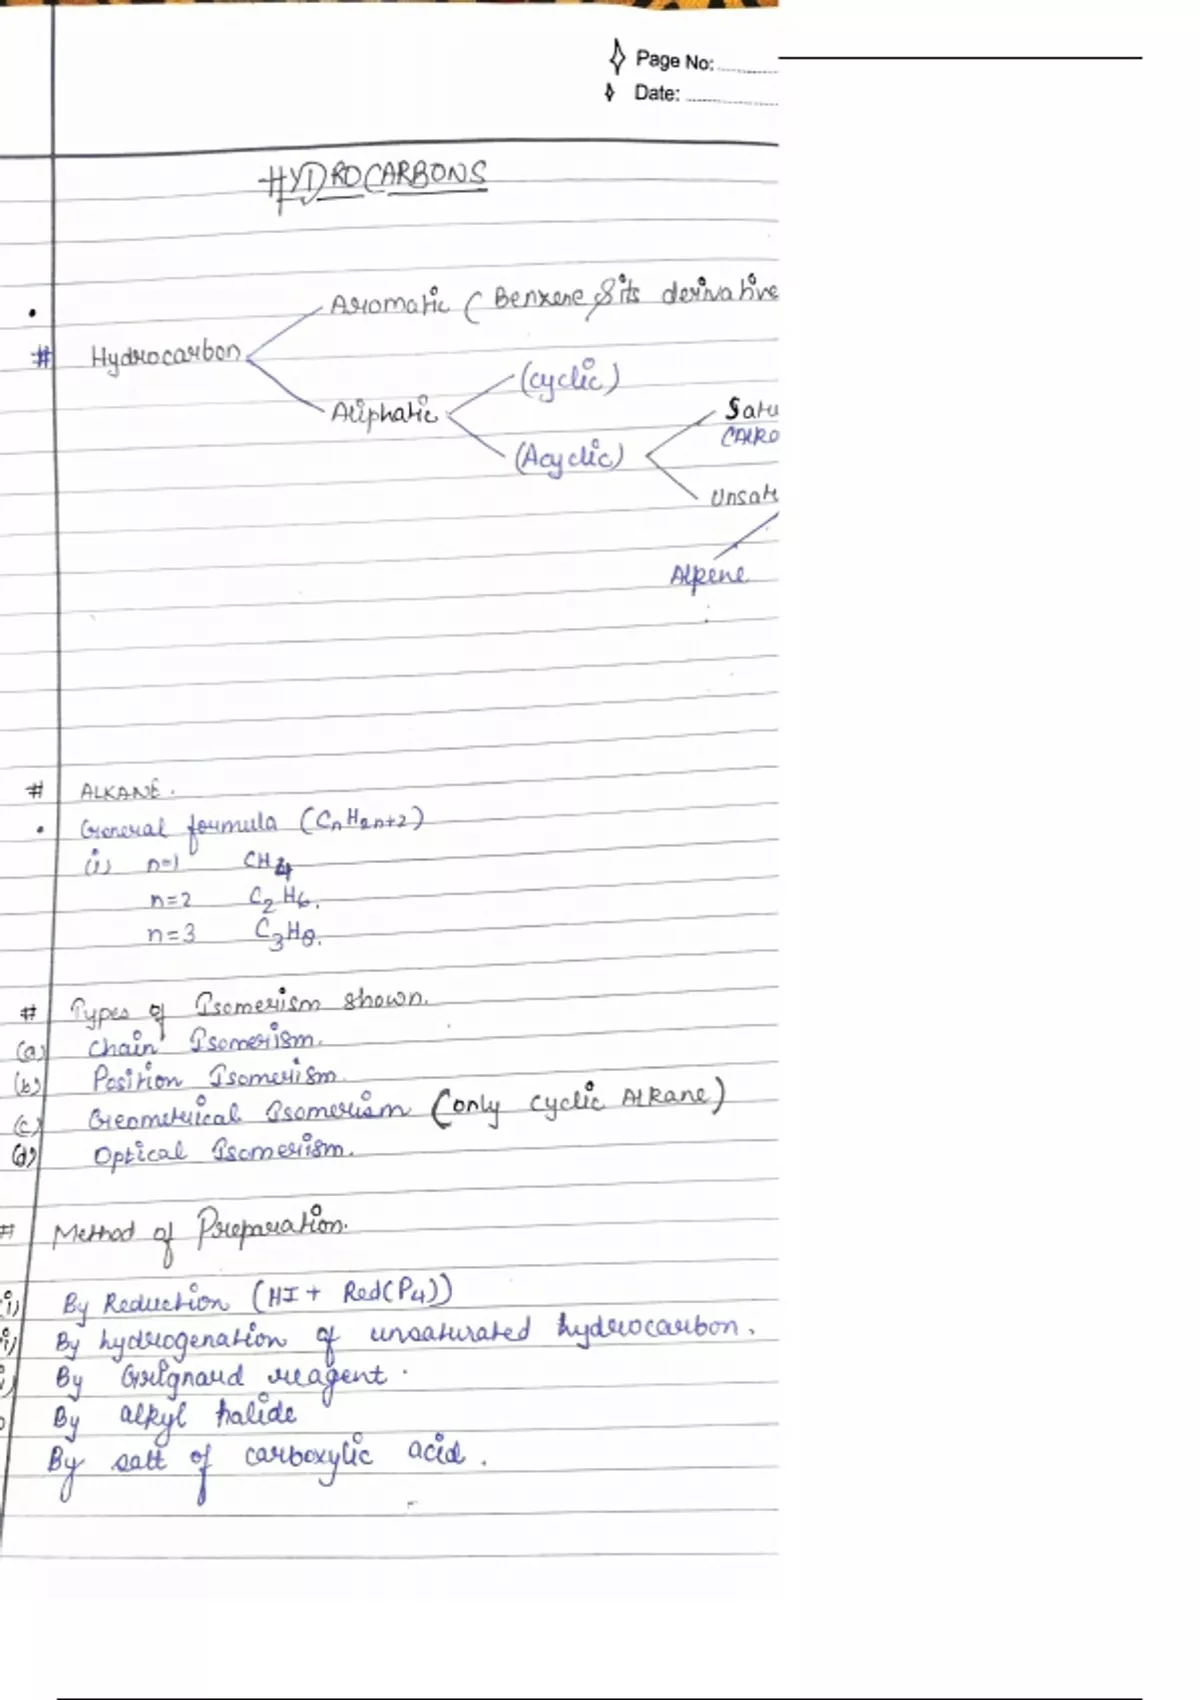 Page No:
Date:
HYDROCARBONS
Aromatic (Benzene & its derivative
# Hydrocarbon
(cyclic)
Aliphatic
Satu
(Alka
(Acyclic)
Unsatu
Alkene
# ALKANE.
• General formula (CnH2n+2)
(i) n=1 CH4
n=2 C2H6.
n=3 C3H8.
# Types of Isomerism shown.
(a) Chain Isomerism.
(b) Position Isomerism.
(c) Geometrical Isomerism (only cyclic Alkane)
(d) Optical Isomerism.
# Method of Preparation.
i) By Reduction (HI + Red(P4))
i) By hydrogenation of unsaturated hydrocarbon.
By Grignard reagent.
By alkyl halide
By salt of carboxylic acid.